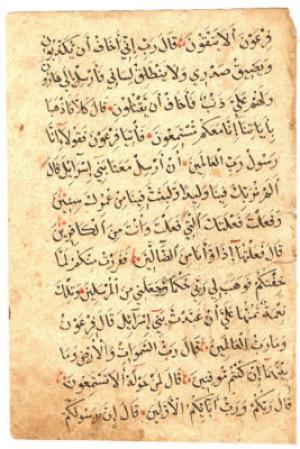 فرعون ألا يتقون قال رب إني أخاف أن يكذبون
ويضيق صدري ولا ينطلق لساني فأرسل إلى هارون
ولهم علي ذنب فأخاف أن يقتلون قال كلا فاذهبا
بآياتنا إنا معكم مستمعون فأتيا فرعون فقولا إنا
رسول رب العالمين أن أرسل معنا بني إسرائيل قال
ألم نربك فينا وليدا ولبثت فينا من عمرك سنين
وفعلت فعلتك التي فعلت وأنت من الكافرين
قال فعلتها إذا وأنا من الضالين ففررت منكم لما
خفتكم فوهب لي ربي حكما وجعلني من المرسلين وتلك
نعمة تمنها علي أن عبدت بني إسرائيل قال فرعون
وما رب العالمين قال رب السموات والأرض وما
بينهما إن كنتم موقنين قال لمن حوله ألا تستمعون
قال ربكم ورب آبائكم الأولين قال إن رسولكم